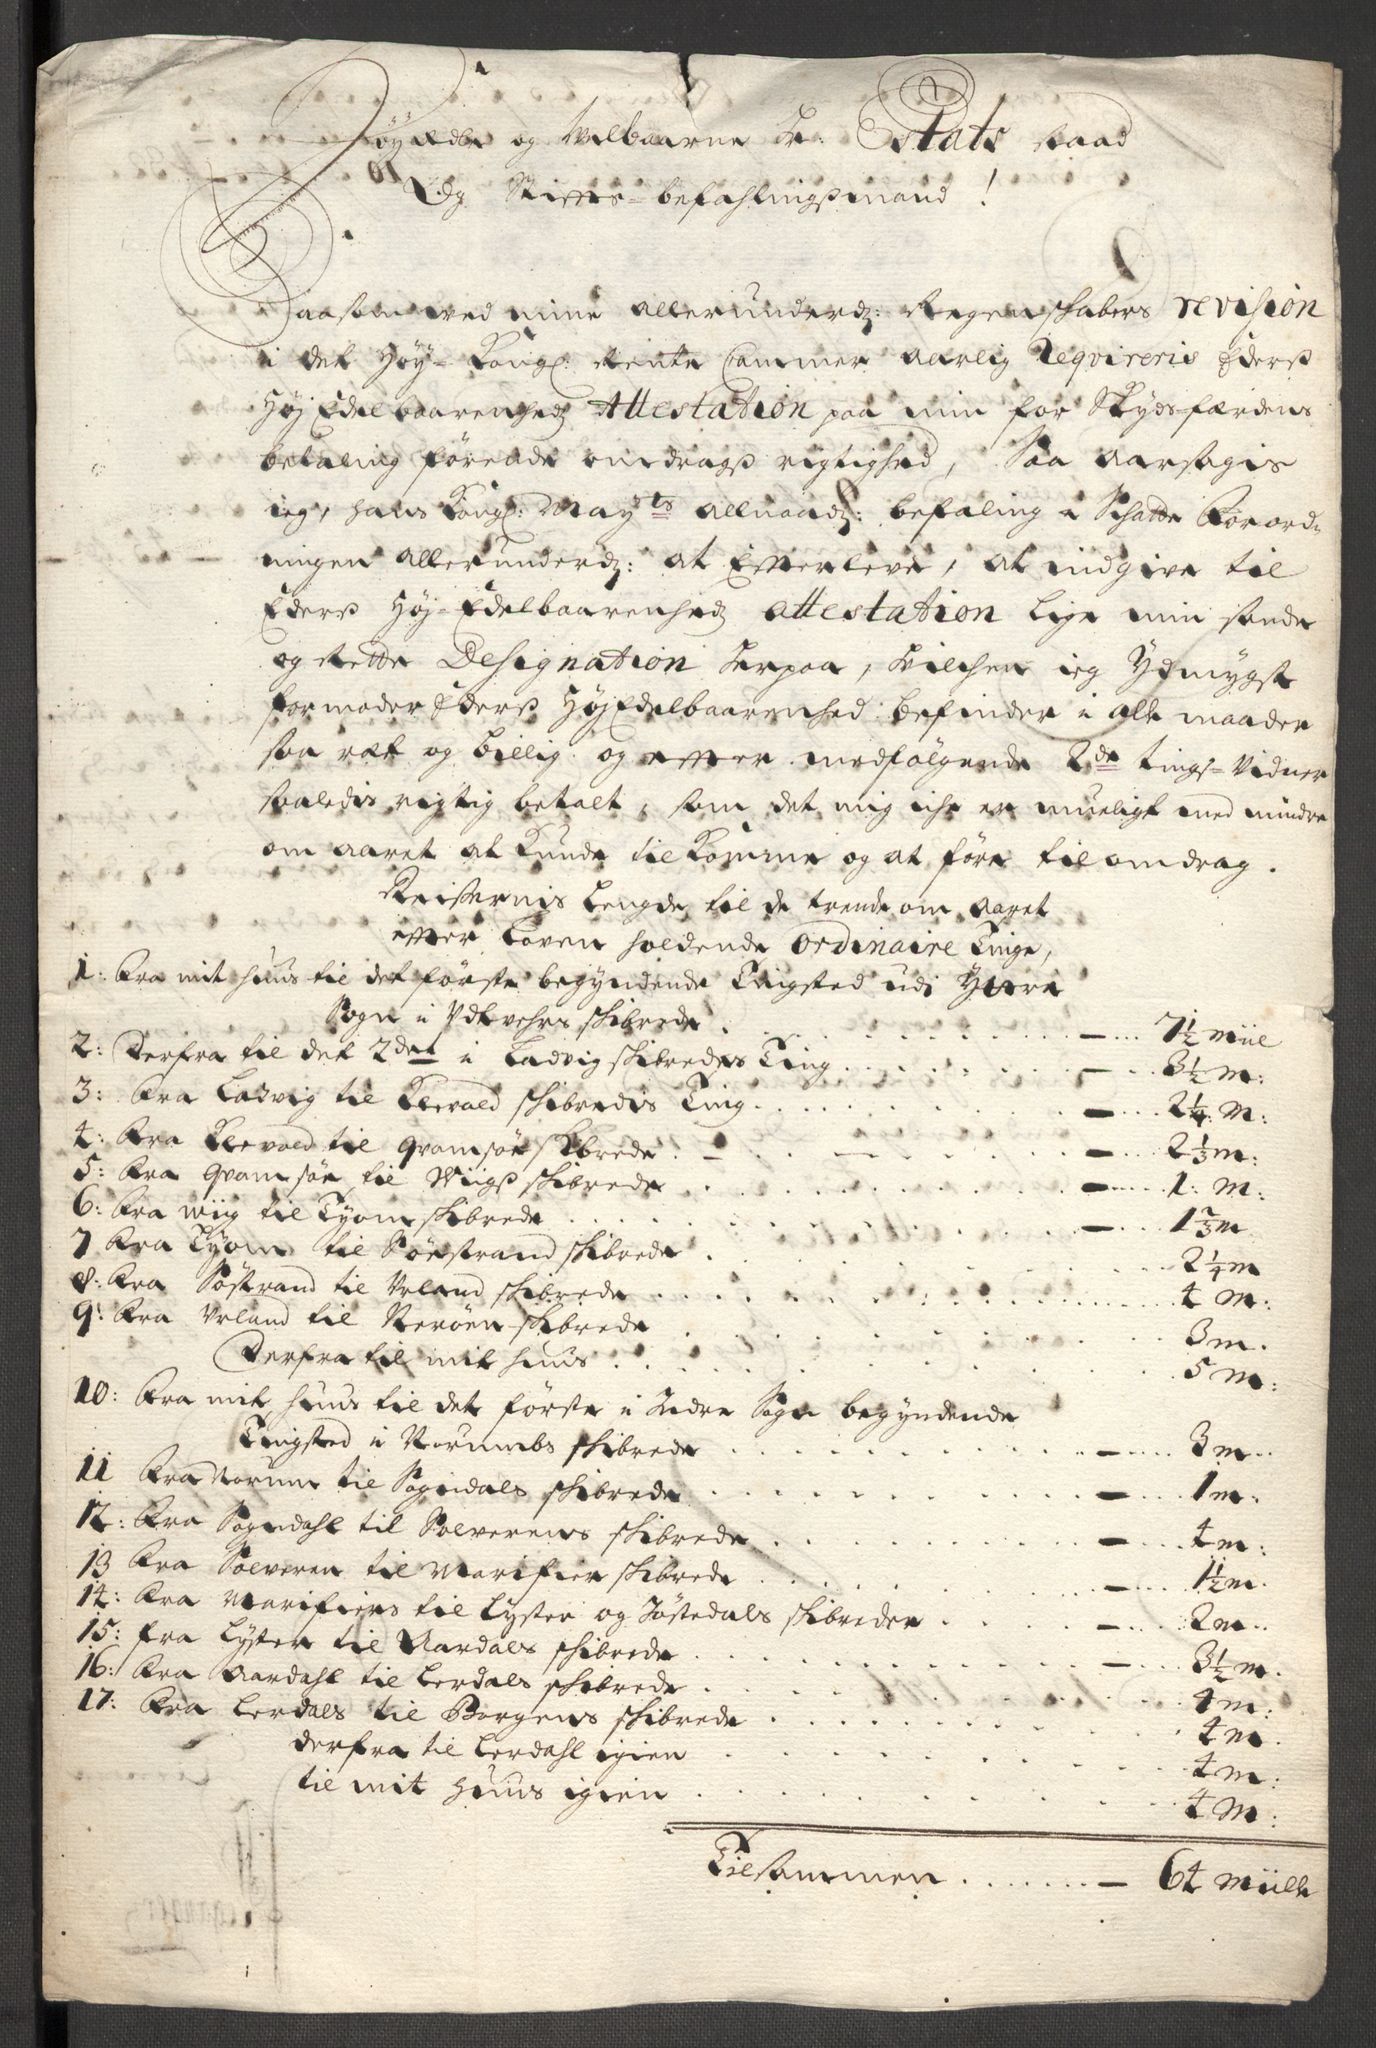 Høyædle og Velbaarne Hr: Estats Raad
Og Stifts-befahlingsmand!
Saasom ved mine allerunderd: Regenskabers revision
i det Høy-Kongl: Rente Cammer aarlig Reqvireris Ederß
Høj Edelbaarenhedz Attestation paa min for Skydsfærdens
betaling førende omdragß rigtighed, Saa aarsagis
ieg, hans Kongl: Mayts allnaadz: befaling i Skatte Forord-
ningen allerunderdz: at Efterleve, at indgive til
Ederß Høj-Edelbaarenhedz attestation lige min sande
og Rette Designation herpaa, hvilchen ieg Ydmygst
formoder Ederß HøjEdelbaarenhed befinder i alle maader
saa ræt og billig og efter medfølgende 2de tings-Vidner
saaledis rigtig betalt, som det mig iche er mueligt med mindre
om aaret at kunde tilkomme og at føre til omdrag.
Reisernis Lengde til de trende om aaret
efter Loven holdende ordinaire Tinge,
1: Fra mit huus til det første begyndende Tingsted udi Yttre
Sogn i Vdvehrs skibrede . 7½ miil
2: Derfra til det 2det i Ladvig skibredes Ting 3½ M:
3: Fra Ladvig til Klevold skibredis Ting 2¼ M:
4: Fra Klevold til Qvamsøe skibrede 2⅓ m:
5: Fra Qvamsøe til Wiigß skibrede 1: M:
6: Fra wiig til Tyom skibrede 1⅔ m
7 Fra Tyom til Sørstrand skibrede 2¼ m
8: Fra Søstrand til Urland skibrede 4 M:
9: Fra Urland til Nerøen skibrede 3 m.
Derfra til mit huus 5 M:
10: Fra mit huus til det første i Indre Sogn begyndende
Tingsted i Norumbs skibrede 3 m
11 Fra Norum til Sogndals skibrede 1 m:
12: Fra Sogndahl til Solverens skibrede 4 m:
13 Fra Solveren til Marifier skibrede 1½ m.
14: Fra Marifiers til Lyster og Jøstedals skibreder 2 m
15: fra Lyster til Aardals skibrede 3½ m.
16: Fra Aardahl til Lerdals skibrede 4 m:
17: Fra Lerdals til Borgens skibrede 4 m.
derfra til Lerdahl igien 4 m:
til mit huus igien 4 M:
Tilsammen 64 miille